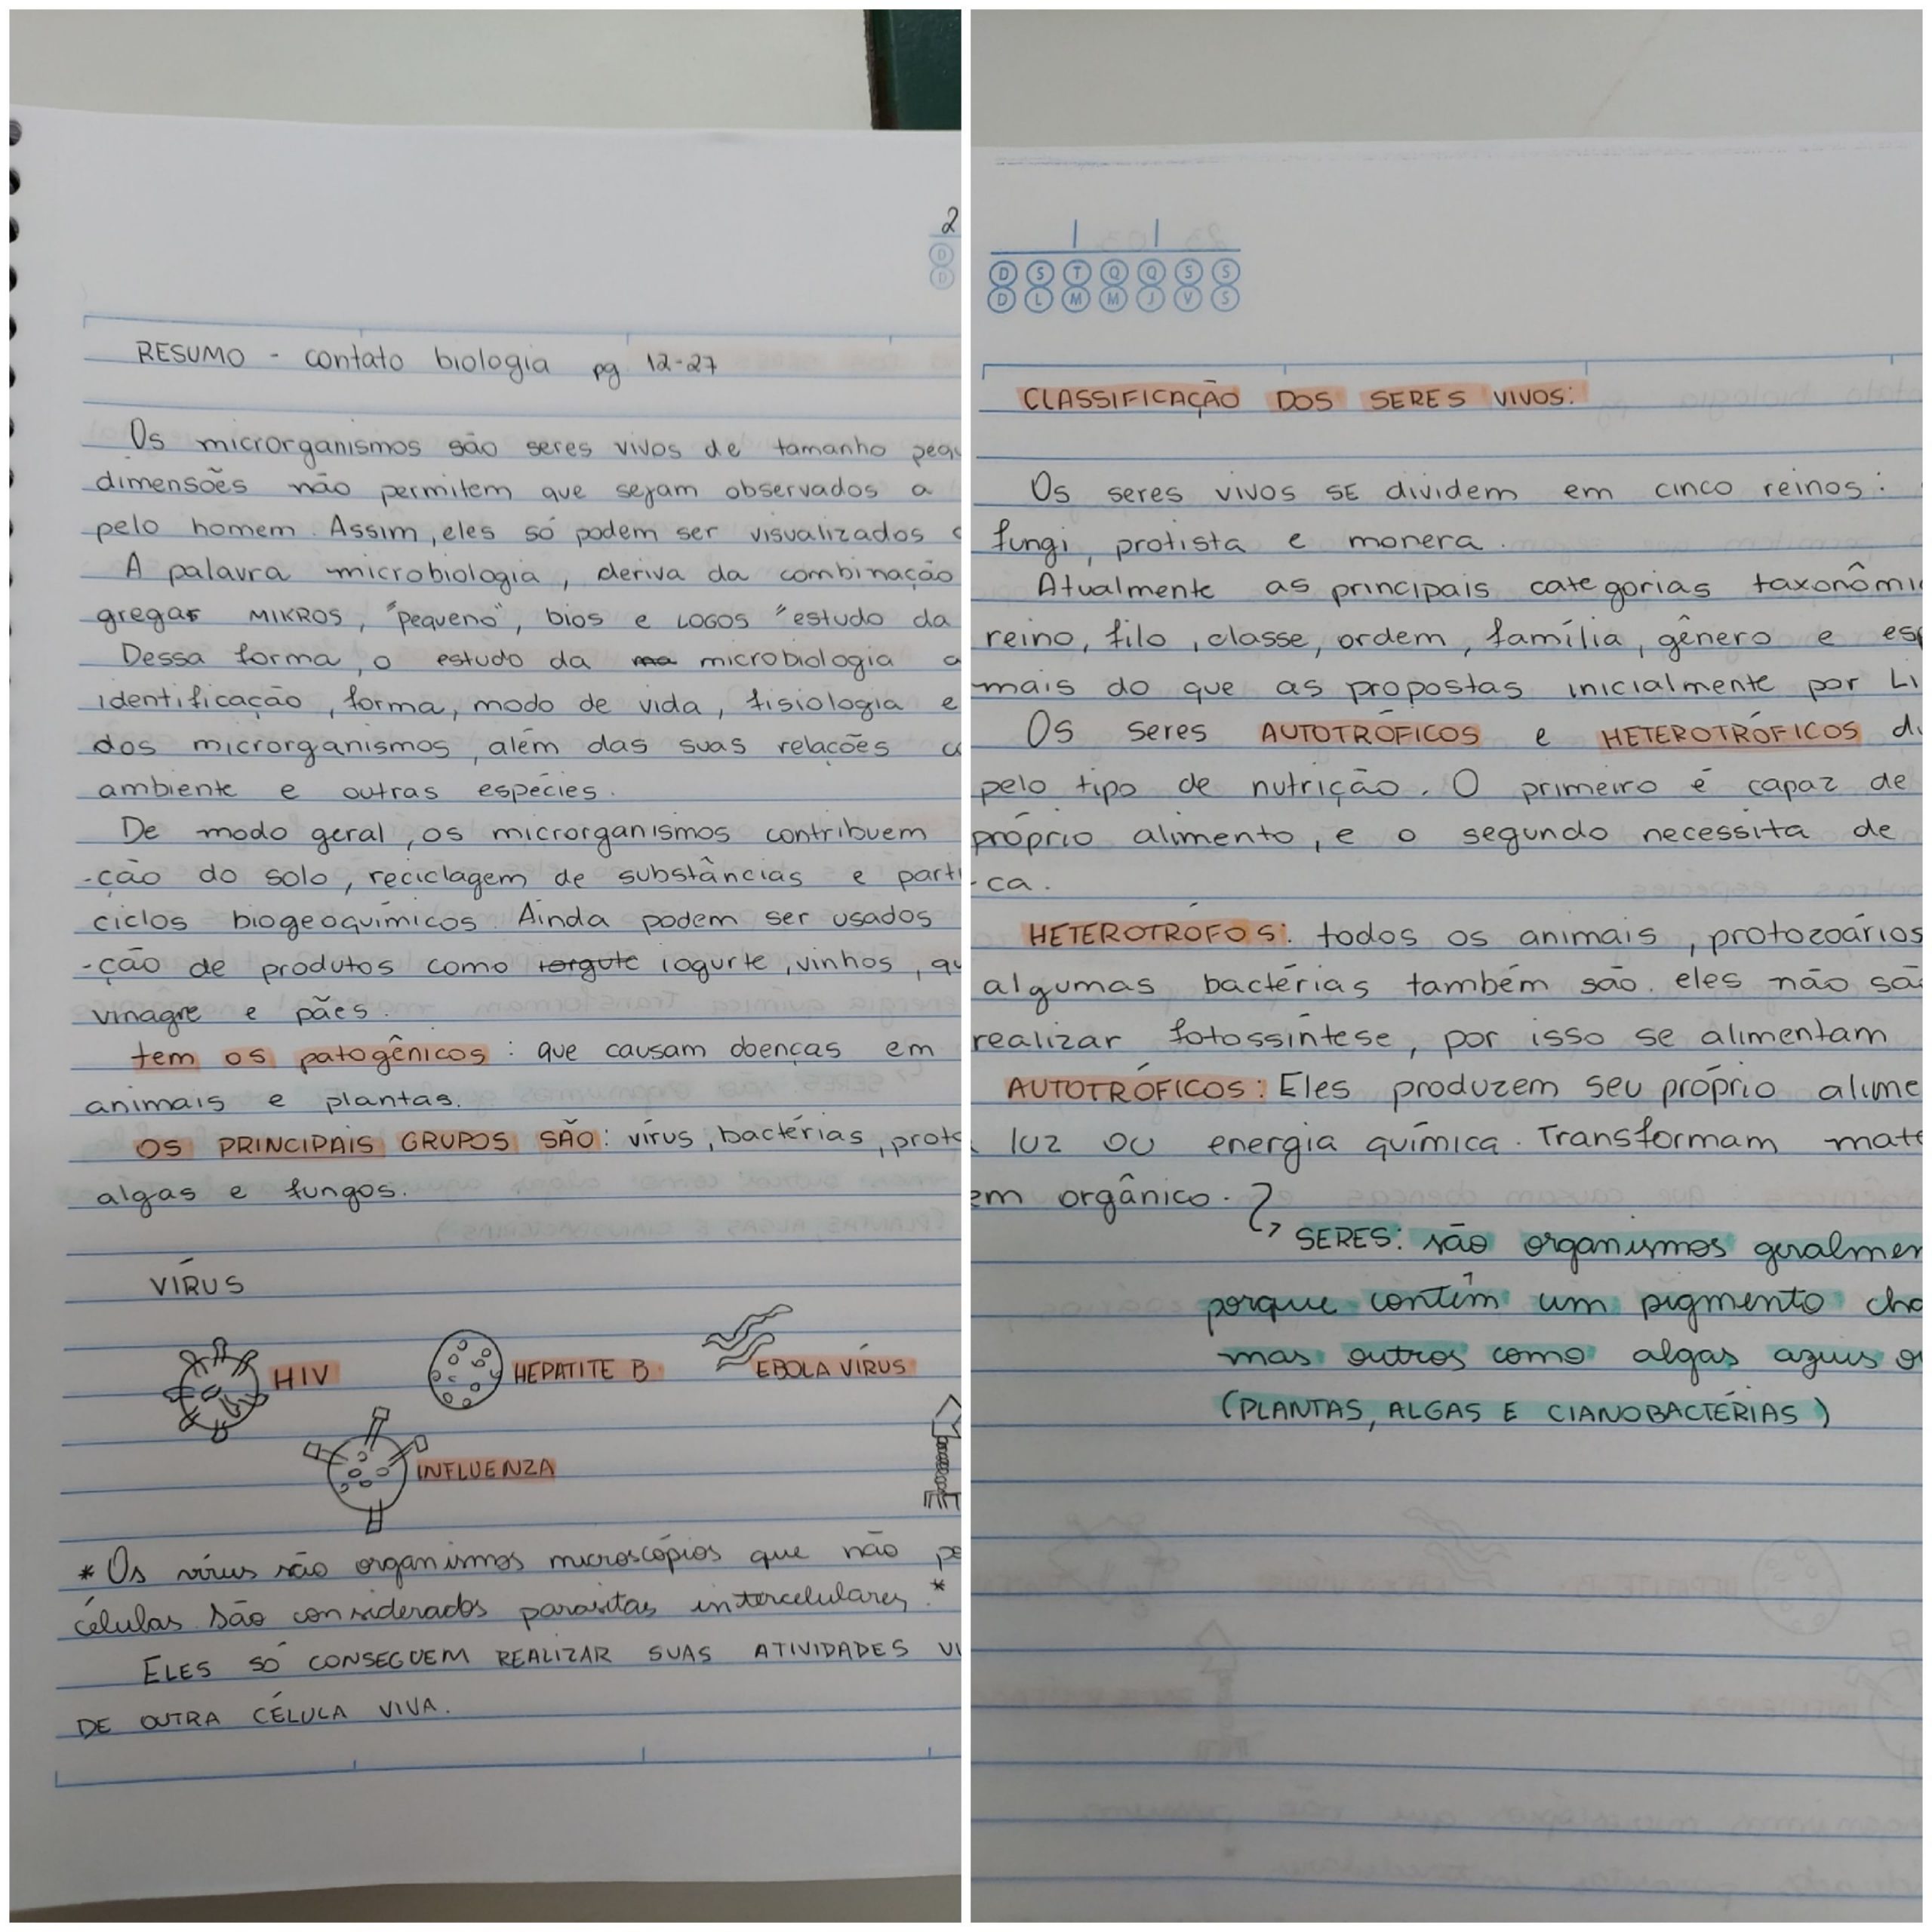 2
RESUMO - contato biologia pg. 12-27
Os microrganismos são seres vivos de tamanho pequ
dimensões não permitem que sejam observados a
pelo homem. Assim, eles só podem ser visualizados c
A palavra microbiologia, deriva da combinação
gregas MIKROS, "pequeno", bios e LOGOS "estudo da
Dessa forma, o estudo da ma microbiologia a
identificação, forma, modo de vida, fisiologia e
dos microrganismos, além das suas relações c
ambiente e outras espécies.
De modo geral, os microrganismos contribuem
-ção do solo, reciclagem de substâncias e parti
ciclos biogeoquímicos. Ainda podem ser usados
-ção de produtos como iorgute iogurte, vinhos, qu
vinagre e pães.
tem os patogênicos: que causam doenças em
animais e plantas.
OS PRINCIPAIS GRUPOS SÃO: vírus, bactérias, proto
algas e fungos.
VÍRUS
HIV HEPATITE B EBOLA VÍRUS
INFLUENZA
* Os vírus são organismos microscópios que não po
células. São considerados parasitas intercelulares. *
ELES SÓ CONSEGUEM REALIZAR SUAS ATIVIDADES VI
DE OUTRA CÉLULA VIVA.
D S T Q Q S S
D L M M J V S
CLASSIFICAÇÃO DOS SERES VIVOS:
Os seres vivos SE dividem em cinco reinos:
fungi, protista e monera.
Atualmente as principais categorias taxonômic
reino, filo, classe, ordem, família, gênero e esp
mais do que as propostas inicialmente por Li
Os seres AUTOTRÓFICOS e HETEROTRÓFICOS di
pelo tipo de nutrição. O primeiro é capaz de
próprio alimento, e o segundo necessita de
-ca.
HETEROTRÓFOS: todos os animais, protozoários
algumas bactérias também são. eles não sã
realizar fotossíntese, por isso se alimentam
AUTOTRÓFICOS: Eles produzem seu próprio alime
luz ou energia química. Transformam mate
em orgânico.
SERES: são organismos geralmen
porque contém um pigmento cha
mas outros como algas azuis ou
(PLANTAS, ALGAS E CIANOBACTÉRIAS)